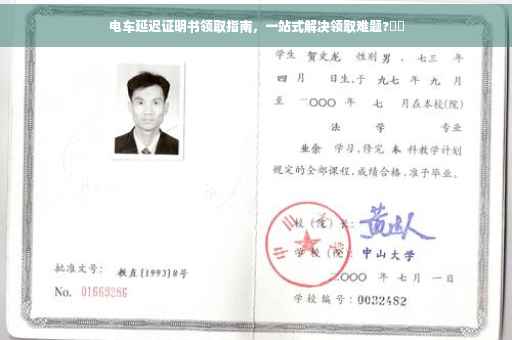 电车延迟证明书领取指南，一站式解决领取难题?
学生 贺文龙 性别 男 ，七三 年
四 月 日生，于 九七 年 九 月
至 二〇〇〇 年 七 月在本校(院)
法 学 专业
业余 学习，修完 本 科教学计划
规定的全部课程，成绩合格，准予毕业。
校（院）长：
学校（院）： 中山大学
二〇〇〇 年 七 月 一 日
学校编号：0032482
批准文号： 教直[1993]8号
No. 01669286